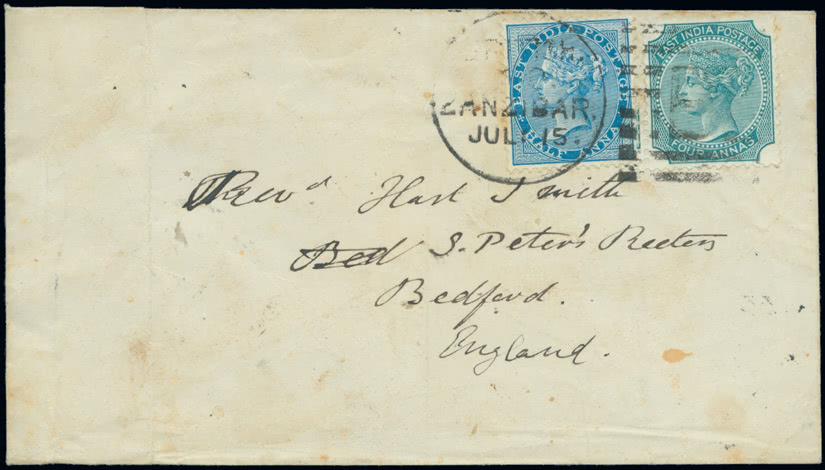 EAST INDIA POSTAGE
HALF ANNA
EAST INDIA POSTAGE
FOUR ANNAS
ZANZIBAR.
JUL 15.
Revd Hart Smith
Bed S. Peter's Rectory
Bedford.
England.